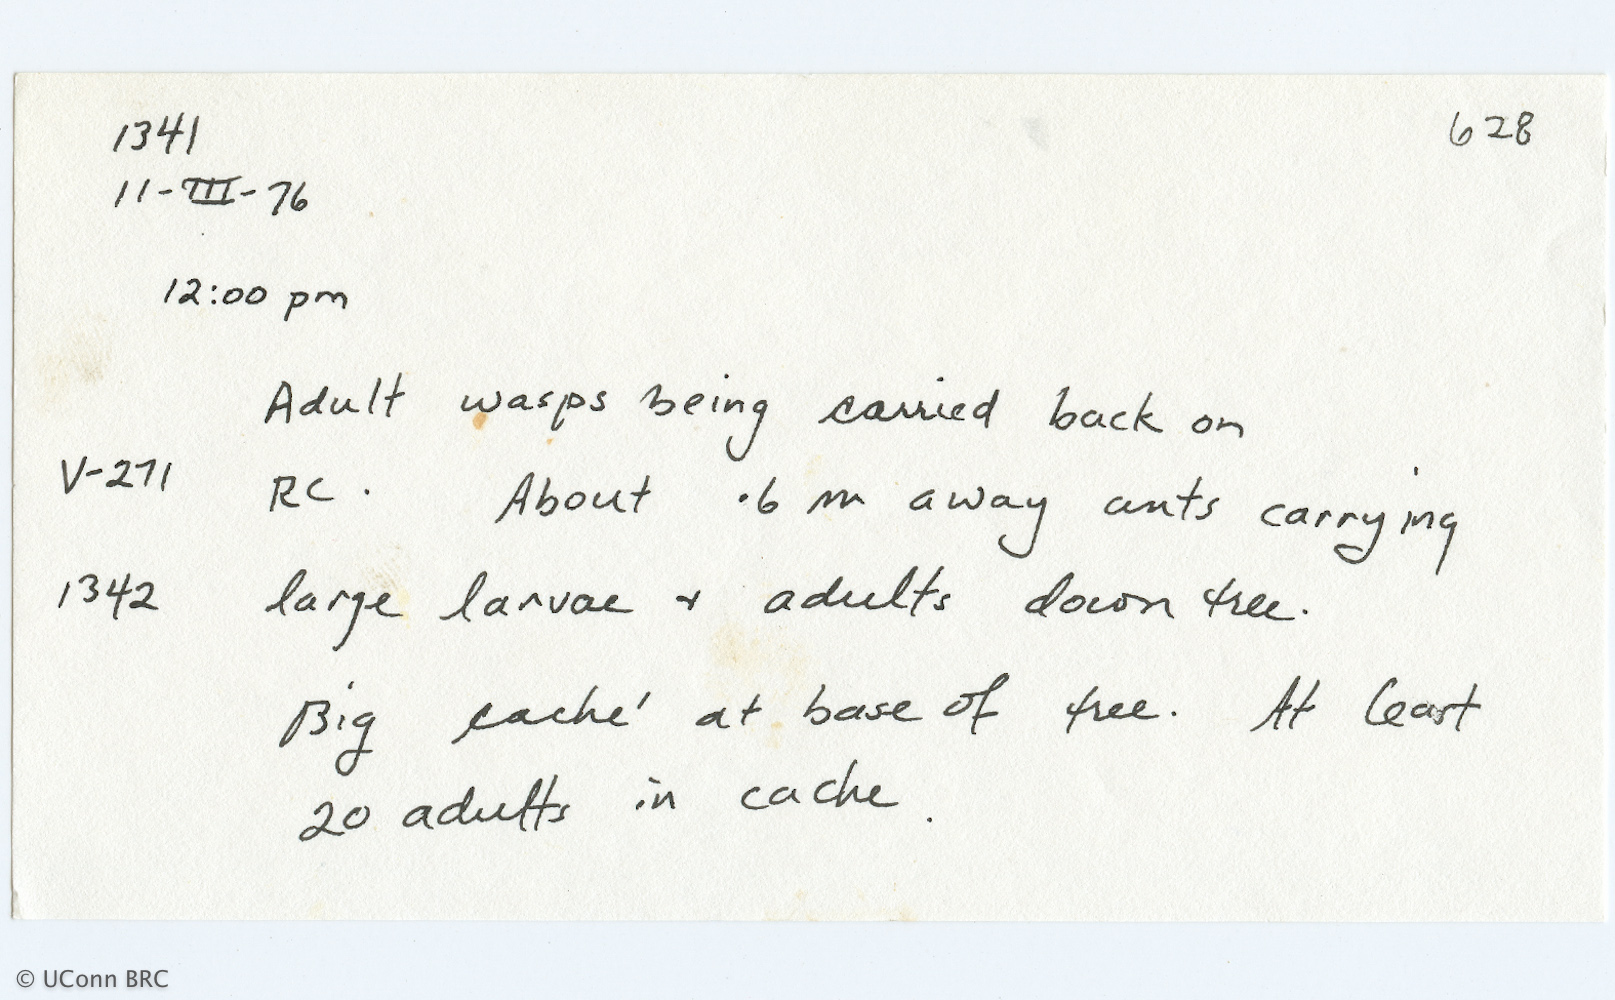 1341
628
11-III-76
12:00 pm
Adult wasps being carried back on
V-271 RC. About .6 m away ants carrying
1342 large larvae & adults down tree.
Big caché at base of tree. At least
20 adults in cache.
© UConn BRC